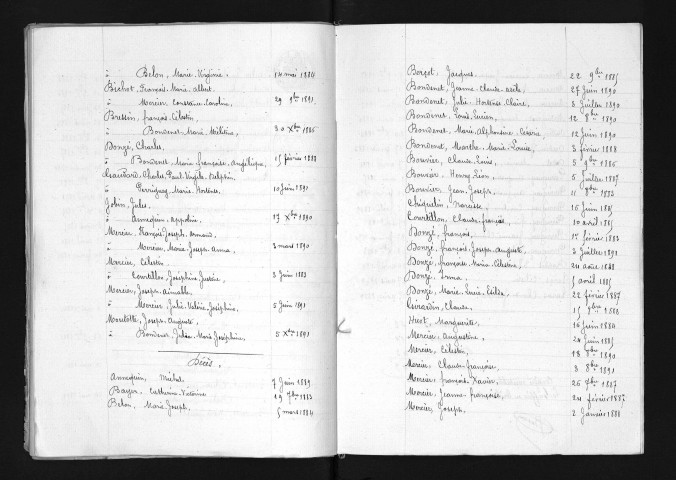 à Belon, Marie Virginie, 14 mai 1884
Bichet, François Marie Albert.
à Mercier, Constance Caroline, 29 9bre 1891.
Bressin, françois Célestin,
à Bondenet, Marie 30 Xbre 1886
Bonzé, Charles,
à Bondenet, Marie françoise Angélique, 15 février 1888
Gaudard, Charles Paul Virgile Delphin,
à Perriguey, Marie Hortense, 10 Juin 1891
Jolin, Jules,
à Annequin, Appoline, 17 Xbre 1890
Mercier, François Joseph Armand,
à Mercier, Marie Joseph Anna, 3 mars 1890
Mercier, Célestin,
à Courtillon, Joséphine Justine, 2 Juin 1883
Mercier, Joseph Aimable,
à Mercier, Julie Valérie Joséphine, 5 Juin 1891
Joseph Auguste,
à Julie Marie Joséphine, 5 Xbre 1891
Décès.
Annequin, Michel 7 Juin 1889
Catherine Victorine 19 7bre 1883
Belon, Marie Joseph, 5 mars 1884
Jacques, 22 9bre 1885
Bondenet, Jeanne Claude 27 Juin 1890
Bondenet, Julie Hortense Claire, 2 Juillet 1890
Bondenet, Louis Lucien, 12 8bre 1890
Bondenet, Marie Alphonsine 12 Juin 1890
Bondenet, Marthe Marie Louise, 3 février 1888
Bouvier, Claude Louis, 5 9bre 1886
Bouvier, Henry Léon, 5 Juillet 1887
Bouvier, Jean Joseph, 11 8bre 1883
Chiquelin, Narcisse, 16 Juin 1885
Courtillon, Claude françois, 10 avril 1885
Bonzé, françois, 1er février 1883
Bonzé, françois Joseph Auguste, 3 Juillet 1891
Bonzé, françoise Maria Célestine, 20 août 1888
Bonzé, Irma 5 avril 1885
Bonzé, Marie Lucie Elilda, 22 février 1887
Girardin, Claude, 15 9bre 1888
Huot, Marguerite, 16 Juin 1880
Mercier, Augustine, 24 Juin 1885
Mercier, Célestin, 18 8bre 1890
Mercier, Claude françoise, 3 8bre 1891
Mercier, françois Xavier, 26 7bre 1887
Mercier, Jeanne françoise, 24 février 1887
Mercier, Joseph, 2 Janvier 1888